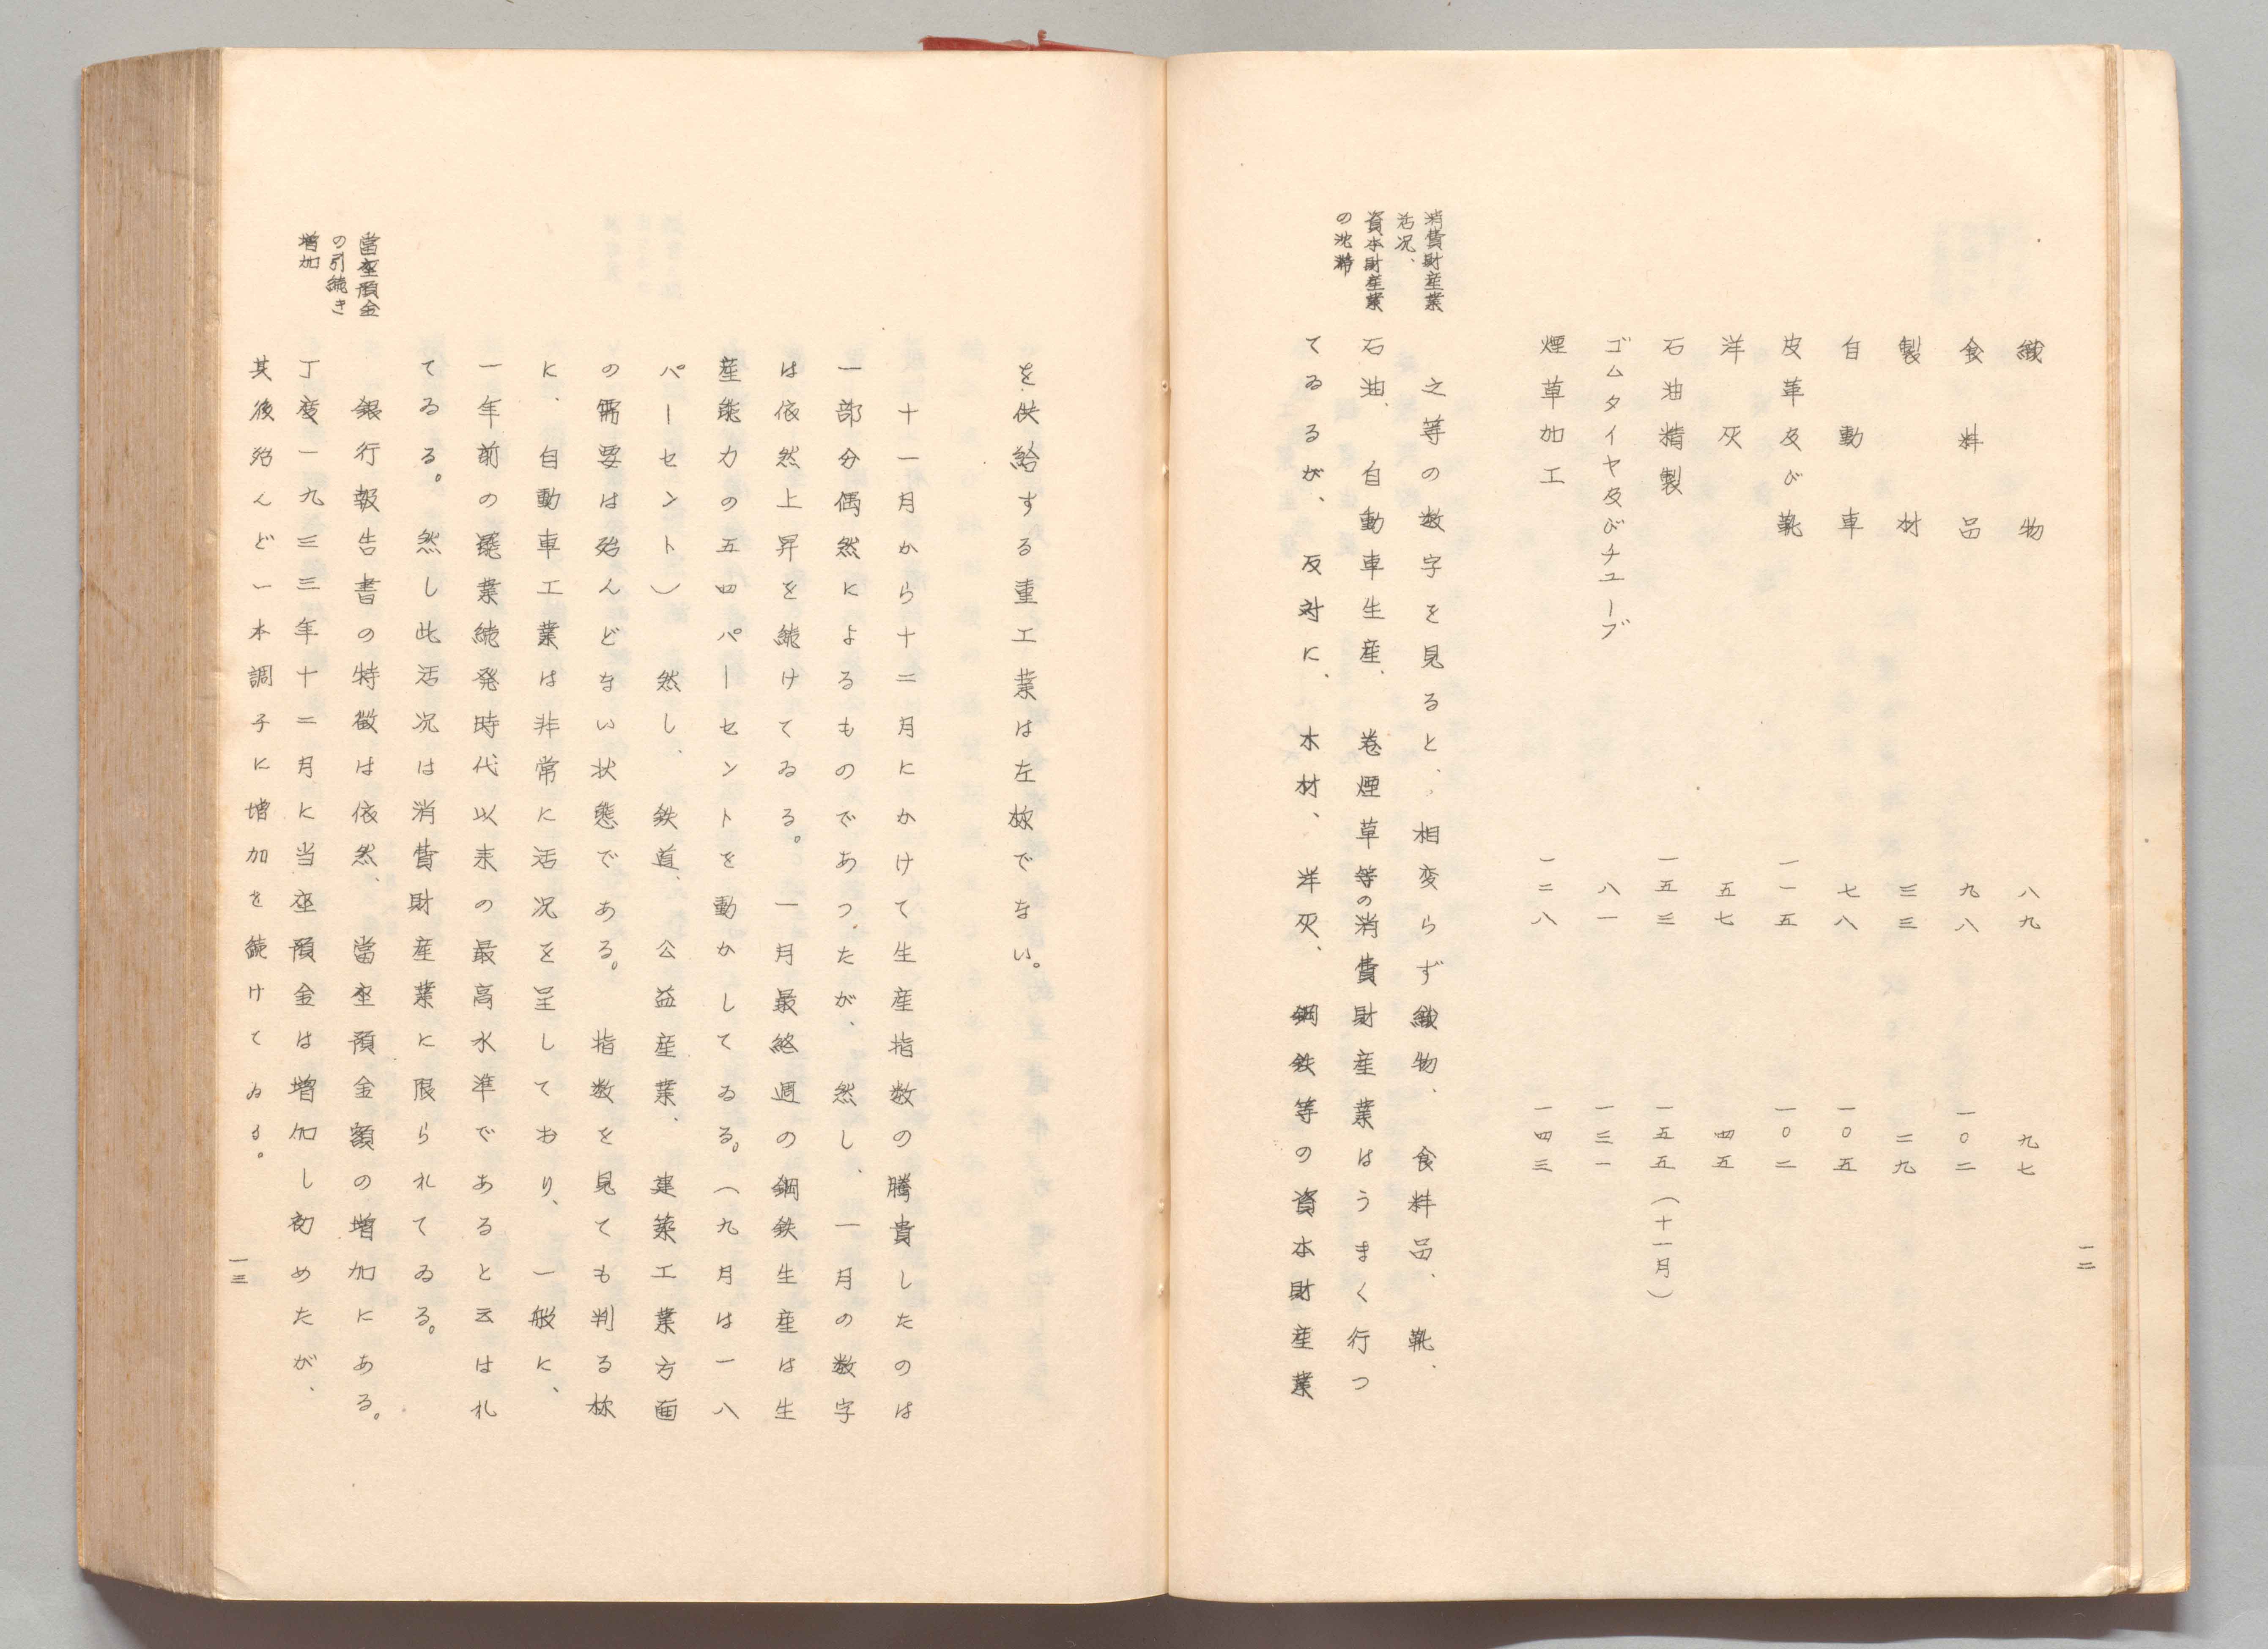 一二
織物 八九 九七
食料品 九八 一〇二
製材 三三 二九
自動車 七八 一〇五
皮革及び靴 一一五 一〇二
洋灰 五七 四五
石油精製 一五三 一五五(十一月)
ゴムタイヤ及びチューブ 八一 一三一
煙草加工 一二八 一四三
消費財産業
活況、
資本財産業
の沈滞
之等の数字を見ると、相変らず織物、食料品、靴、
石油、自動車生産、巻煙草等の消費財産業はうまく行つ
てゐるが、反対に、木材、洋灰、鋼鉄等の資本財産業
を供給する重工業は左様でない。
十一月から十二月にかけて生産指数の騰貴したのは
一部分偶然によるものであつたが、然し、一月の数字
は依然上昇を続けてゐる。一月最終週の鋼鉄生産は生
産能力の五四パーセントを動かしてゐる。(九月は一八
パーセント)然し、鉄道、公益産業、建築工業方面
の需要は殆んどない状態である。指数を見ても判る様
に、自動車工業は非常に活況を呈しており、一般に、
一年前の罷業続発時代以来の最高水準であると云はれ
てゐる。然し此活況は消費財産業に限られてゐる。
當座預金
の引続き
増加
銀行報告書の特徴は依然、當座預金額の増加にある。
丁度一九三三年十二月に当座預金は増加し初めたが、
其後殆んど一本調子に増加を続けてゐる。
一三